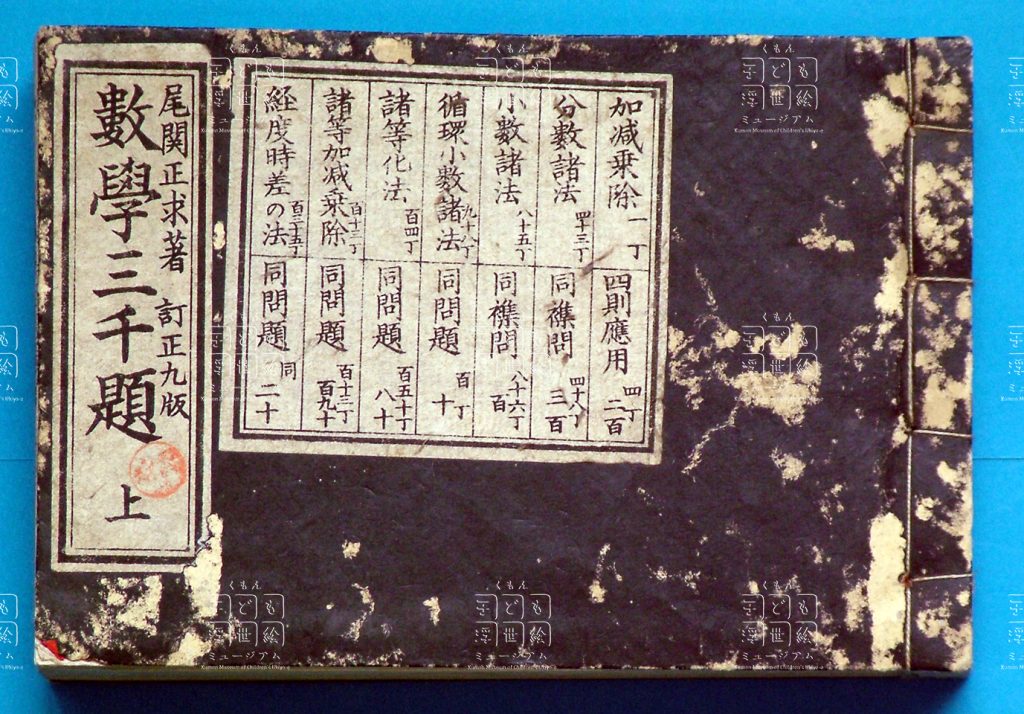 尾関正求著 訂正九版
數學三千題
上
加減乗除 一丁
四則應用 四丁 二百
分數諸法 四十三丁
同襍問 四十八丁 三百
小數諸法 八十五丁
同襍問 八十六丁 百
循環小數諸法 九十八丁
同問題 百丁 十
諸等化法 百四丁
同問題 百五十丁 八十
諸等加減乗除 百十三丁
同問題 百十三丁 百九十
経度時差の法 百三十五丁
同問題 同 二十
くもん
子ども
浮世絵
ミュージアム
Kumon Museum of Children's Ukiyo-e